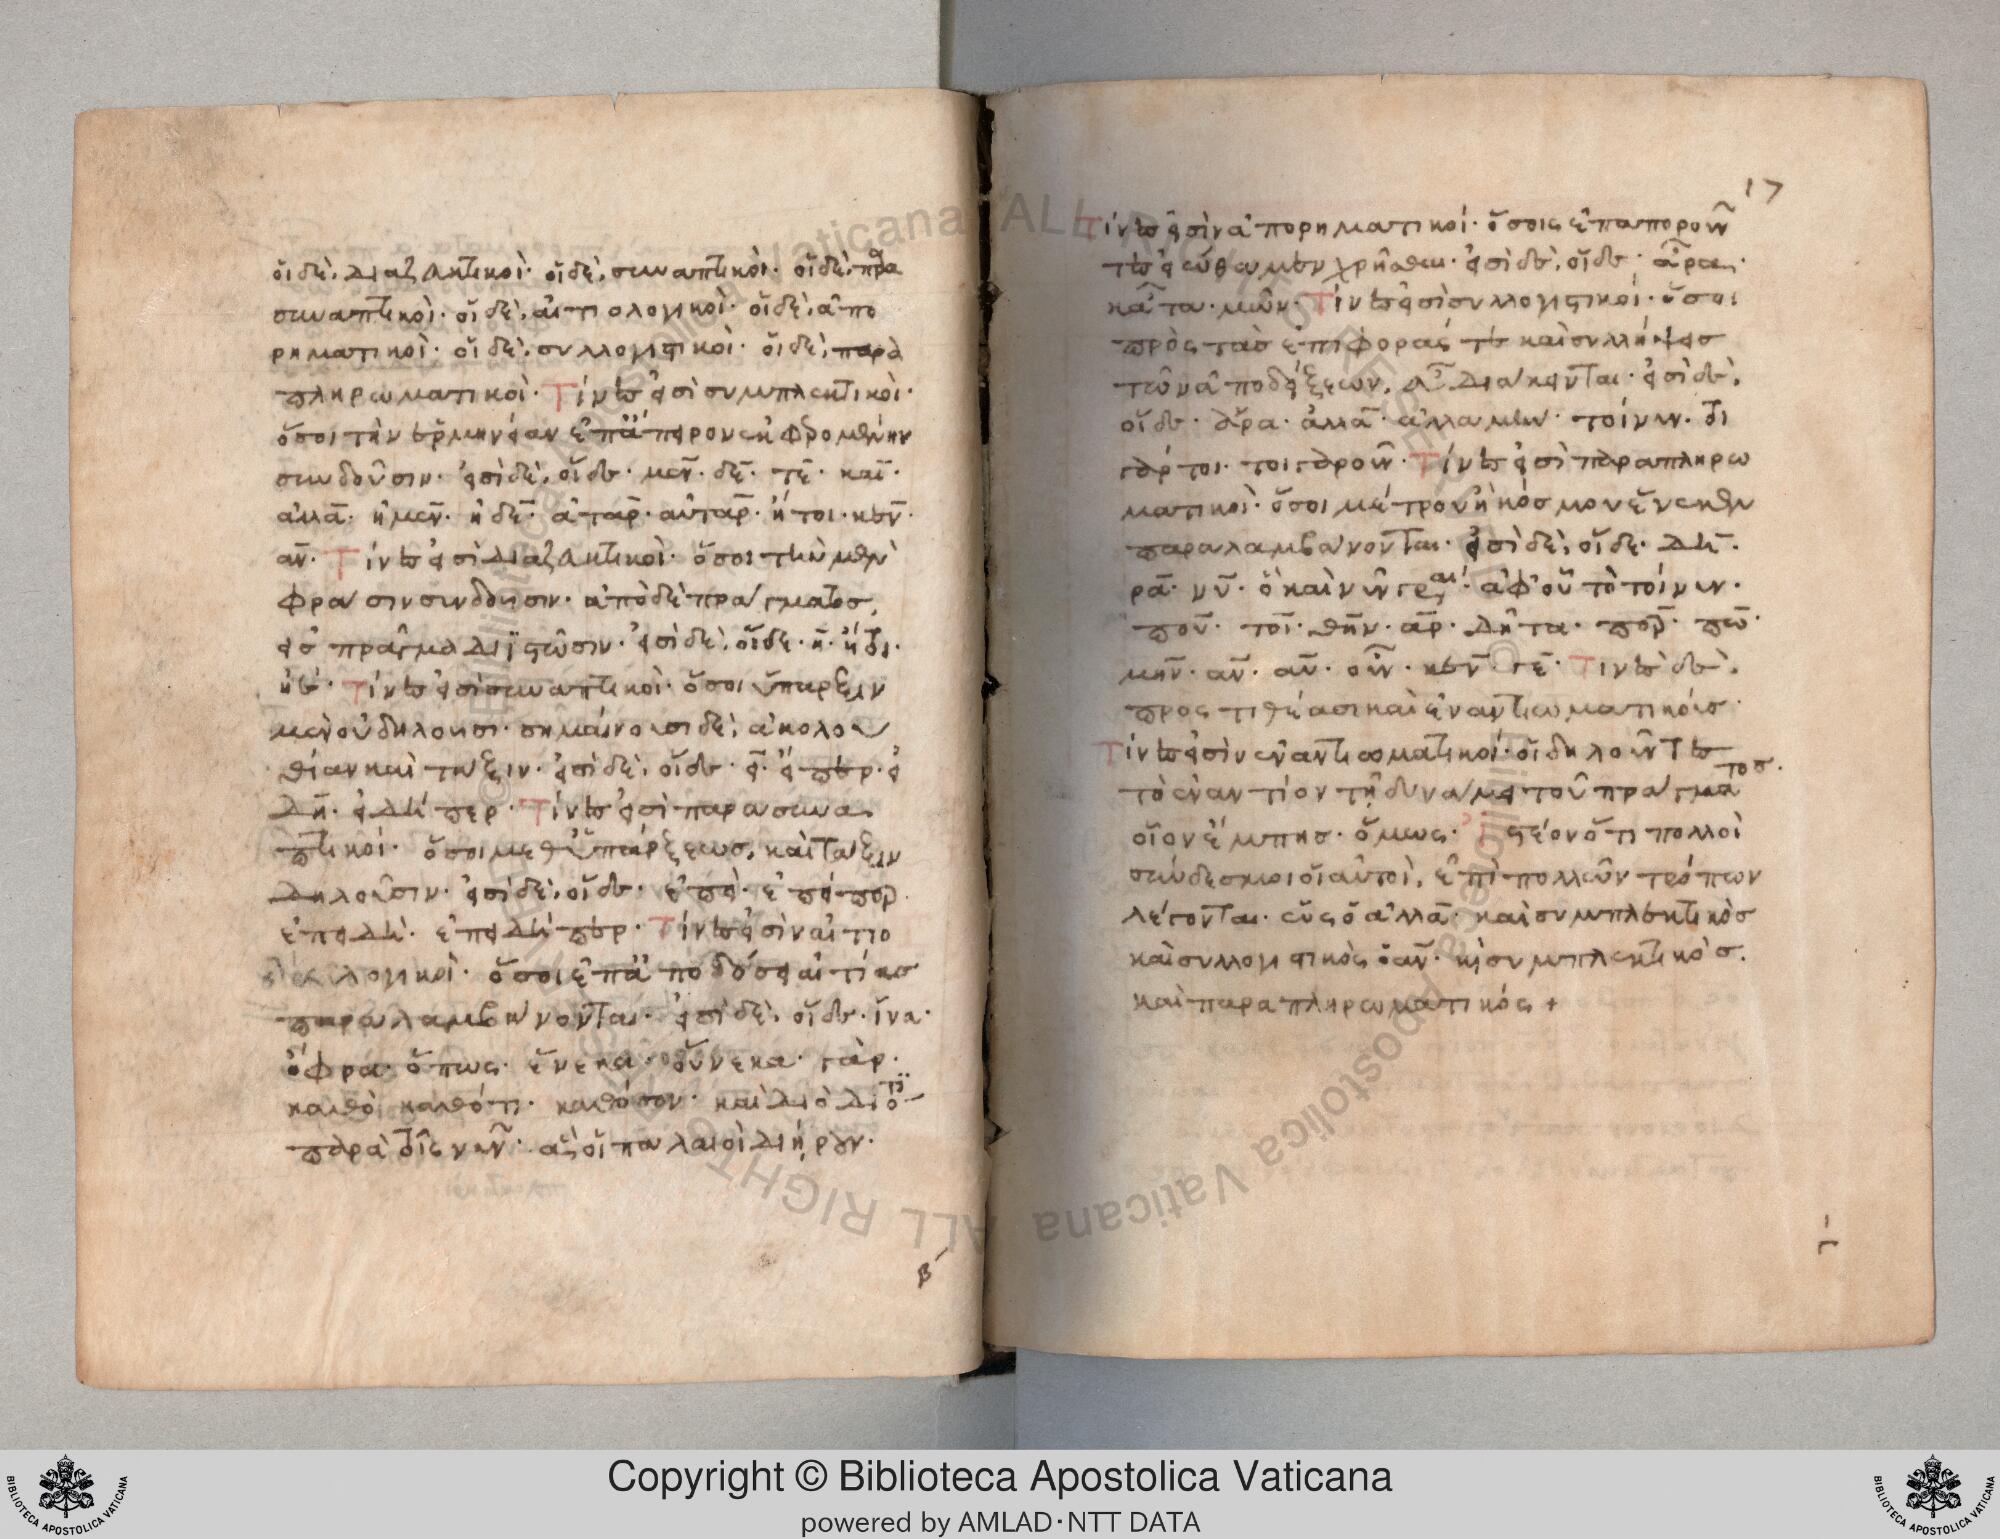 οἱ δὲ, διαζευκτικοί· οἱ δὲ, συναπτικοί· οἱ δὲ, παρα
συναπτικοί· οἱ δὲ, αἰτιολογικοί· οἱ δὲ, ἀπο
ρηματικοί· οἱ δὲ, συλλογιστικοί· οἱ δὲ, παρα
πληρωματικοί· Τίνες εἰσὶ συμπλεκτικοί·
ὅσοι τὴν ἑρμηνείαν ἐπάπειρον ἐκφερομένην
συνδοῦσιν· εἰσὶ δὲ, οἵδε· μέν· δέ· τέ· καί·
ἀλλά· ἠμέν· ἠδέ· ἀτάρ· αὐτάρ· ἤτοι· κέν·
ἄν· Τίνες εἰσὶ διαζευκτικοί· ὅσοι τὴν μὲν
φράσιν συνδέουσιν· ἀπὸ δὲ πράγματος,
εἰς πρᾶγμα διϊστῶσιν· εἰσὶ δὲ, οἵδε· ἤ· ἤτοι·
ἠέ· Τίνες εἰσὶ συναπτικοί· ὅσοι ὕπαρξιν
μὲν οὐ δηλοῦσι· σημαίνουσι δὲ, ἀκολου
θίαν καὶ τάξιν· εἰσὶ δὲ, οἵδε· εἰ· εἴπερ· εἰ
δή· εἰδήπερ· Τίνες εἰσὶ παρασυνα
πτικοί· ὅσοι μεθ' ὑπάρξεως, καὶ τάξιν
δηλοῦσιν· εἰσὶ δὲ, οἵδε· ἐπεί· ἐπείπερ·
ἐπειδή· ἐπειδήπερ· Τίνες εἰσὶν αἰτιο
λογικοί· ὅσοι ἐπ' ἀποδόσει αἰτίας
παραλαμβάνονται· εἰσὶ δὲ, οἵδε· ἵνα·
ὄφρα· ὅπως· ἕνεκα· οὕνεκα· γάρ·
καθὸ· καθότι· καθόσον· καὶ διὸ διότι
παρὰ τοῖς νῦν· ἃς οἱ παλαιοὶ διῄρουν·
β
17
Τίνες εἰσὶν ἀπορηματικοί· ὅσοις ἐπαποροῦν
τες εἰώθαμεν χρῆσθαι· εἰσὶ δὲ, οἵδε· ἆρα·
κᾆτα· μῶν· Τίνες εἰσὶ συλλογιστικοί· ὅσοι
πρὸς τὰς ἐπιφοράς τε καὶ συλλήψεις
τῶν ἀποδείξεων, εὖ διάκεινται· εἰσὶ δὲ,
οἵδε· ἄρα· ἀλλά· ἀλλαμήν· τοίνυν· τοι
γάρτοι· τοιγαροῦν· Τίνες εἰσὶ παραπληρω
ματικοί· ὅσοι μέτρου ἢ κόσμου ἕνεκεν
παραλαμβάνονται· εἰσὶ δὲ, οἵδε· δή·
ῥά· νύ· ὃ καὶ νῦν γε· ἀφ' οὗ τὸ τοίνυν·
που· τοί· θήν· ἄρ· δῆτα· περ· πω·
μήν· ἄν· αὖ· οὖν· κέν· γέ· Τινὲς δὲ,
προστιθέασι καὶ ἐναντιωματικούς·
Τίνες εἰσὶν ἐναντιωματικοί· οἱ δηλοῦντες
τὸ ἐναντίον τῇ δυνάμει τοῦ πράγματος·
οἷον ἔμπης· ὅμως· Ἰστέον ὅτι πολλοὶ
σύνδεσμοι οἱ αὐτοὶ, ἐπὶ πολλῶν τρόπων
λέγονται· ὡς ὁ ἀλλά· καὶ συμπλεκτικὸς
καὶ συλλογιστικὸς ὁ ἄν· καὶ συμπλεκτικός·
καὶ παραπληρωματικός +
Copyright © Biblioteca Apostolica Vaticana
powered by AMLAD·NTT DATA